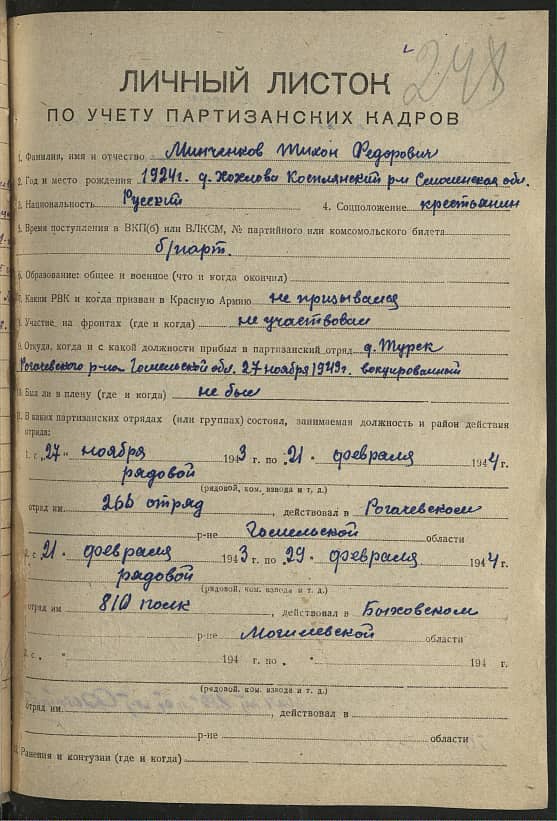 248
ЛИЧНЫЙ ЛИСТОК
ПО УЧЕТУ ПАРТИЗАНСКИХ КАДРОВ
1. Фамилия, имя и отчество Минченков Тихон Федорович
2. Год и место рождения 1924г. д. Хохлова Касплянский р-н Смоленская обл.
3. Национальность Русский 4. Соцположение крестьянин
5. Время поступления в ВКП(б) или ВЛКСМ, № партийного или комсомольского билета
б/парт.
6. Образование: общее и военное (что и когда окончил)
7. Каким РВК и когда призван в Красную Армию не призывался
8. Участие на фронтах (где и когда) не участвовал
9. Откуда, когда и с какой должности прибыл в партизанский отряд д. Турск
Рогачевского р-на Гомельской обл. 27 ноября 1943г. вокуированный
10. Был ли в плену (где и когда) не был
11. В каких партизанских отрядах (или группах) состоял, занимаемая должность и район действия
отряда:
1. с „27" ноября 1943 г. по „21" февраля 1944 г.
рядовой
(рядовой, ком. взвода и т. д.)
отряд им. 266 отряд, действовал в Рогачевском
р-не Гомельской области
2. с 21" февраля 1943 г. по „29" февраля 1944 г.
рядовой
(рядовой, ком. взвода и т. д.)
отряд им 810 полк, действовал в Быховском
р-не Могилевской области
3. с „ " 194 г. по „ " 194 г.
(рядовой, ком. взвода и т. д.)
отряд им., действовал в
р-не области
Ранения и контузии (где и когда)